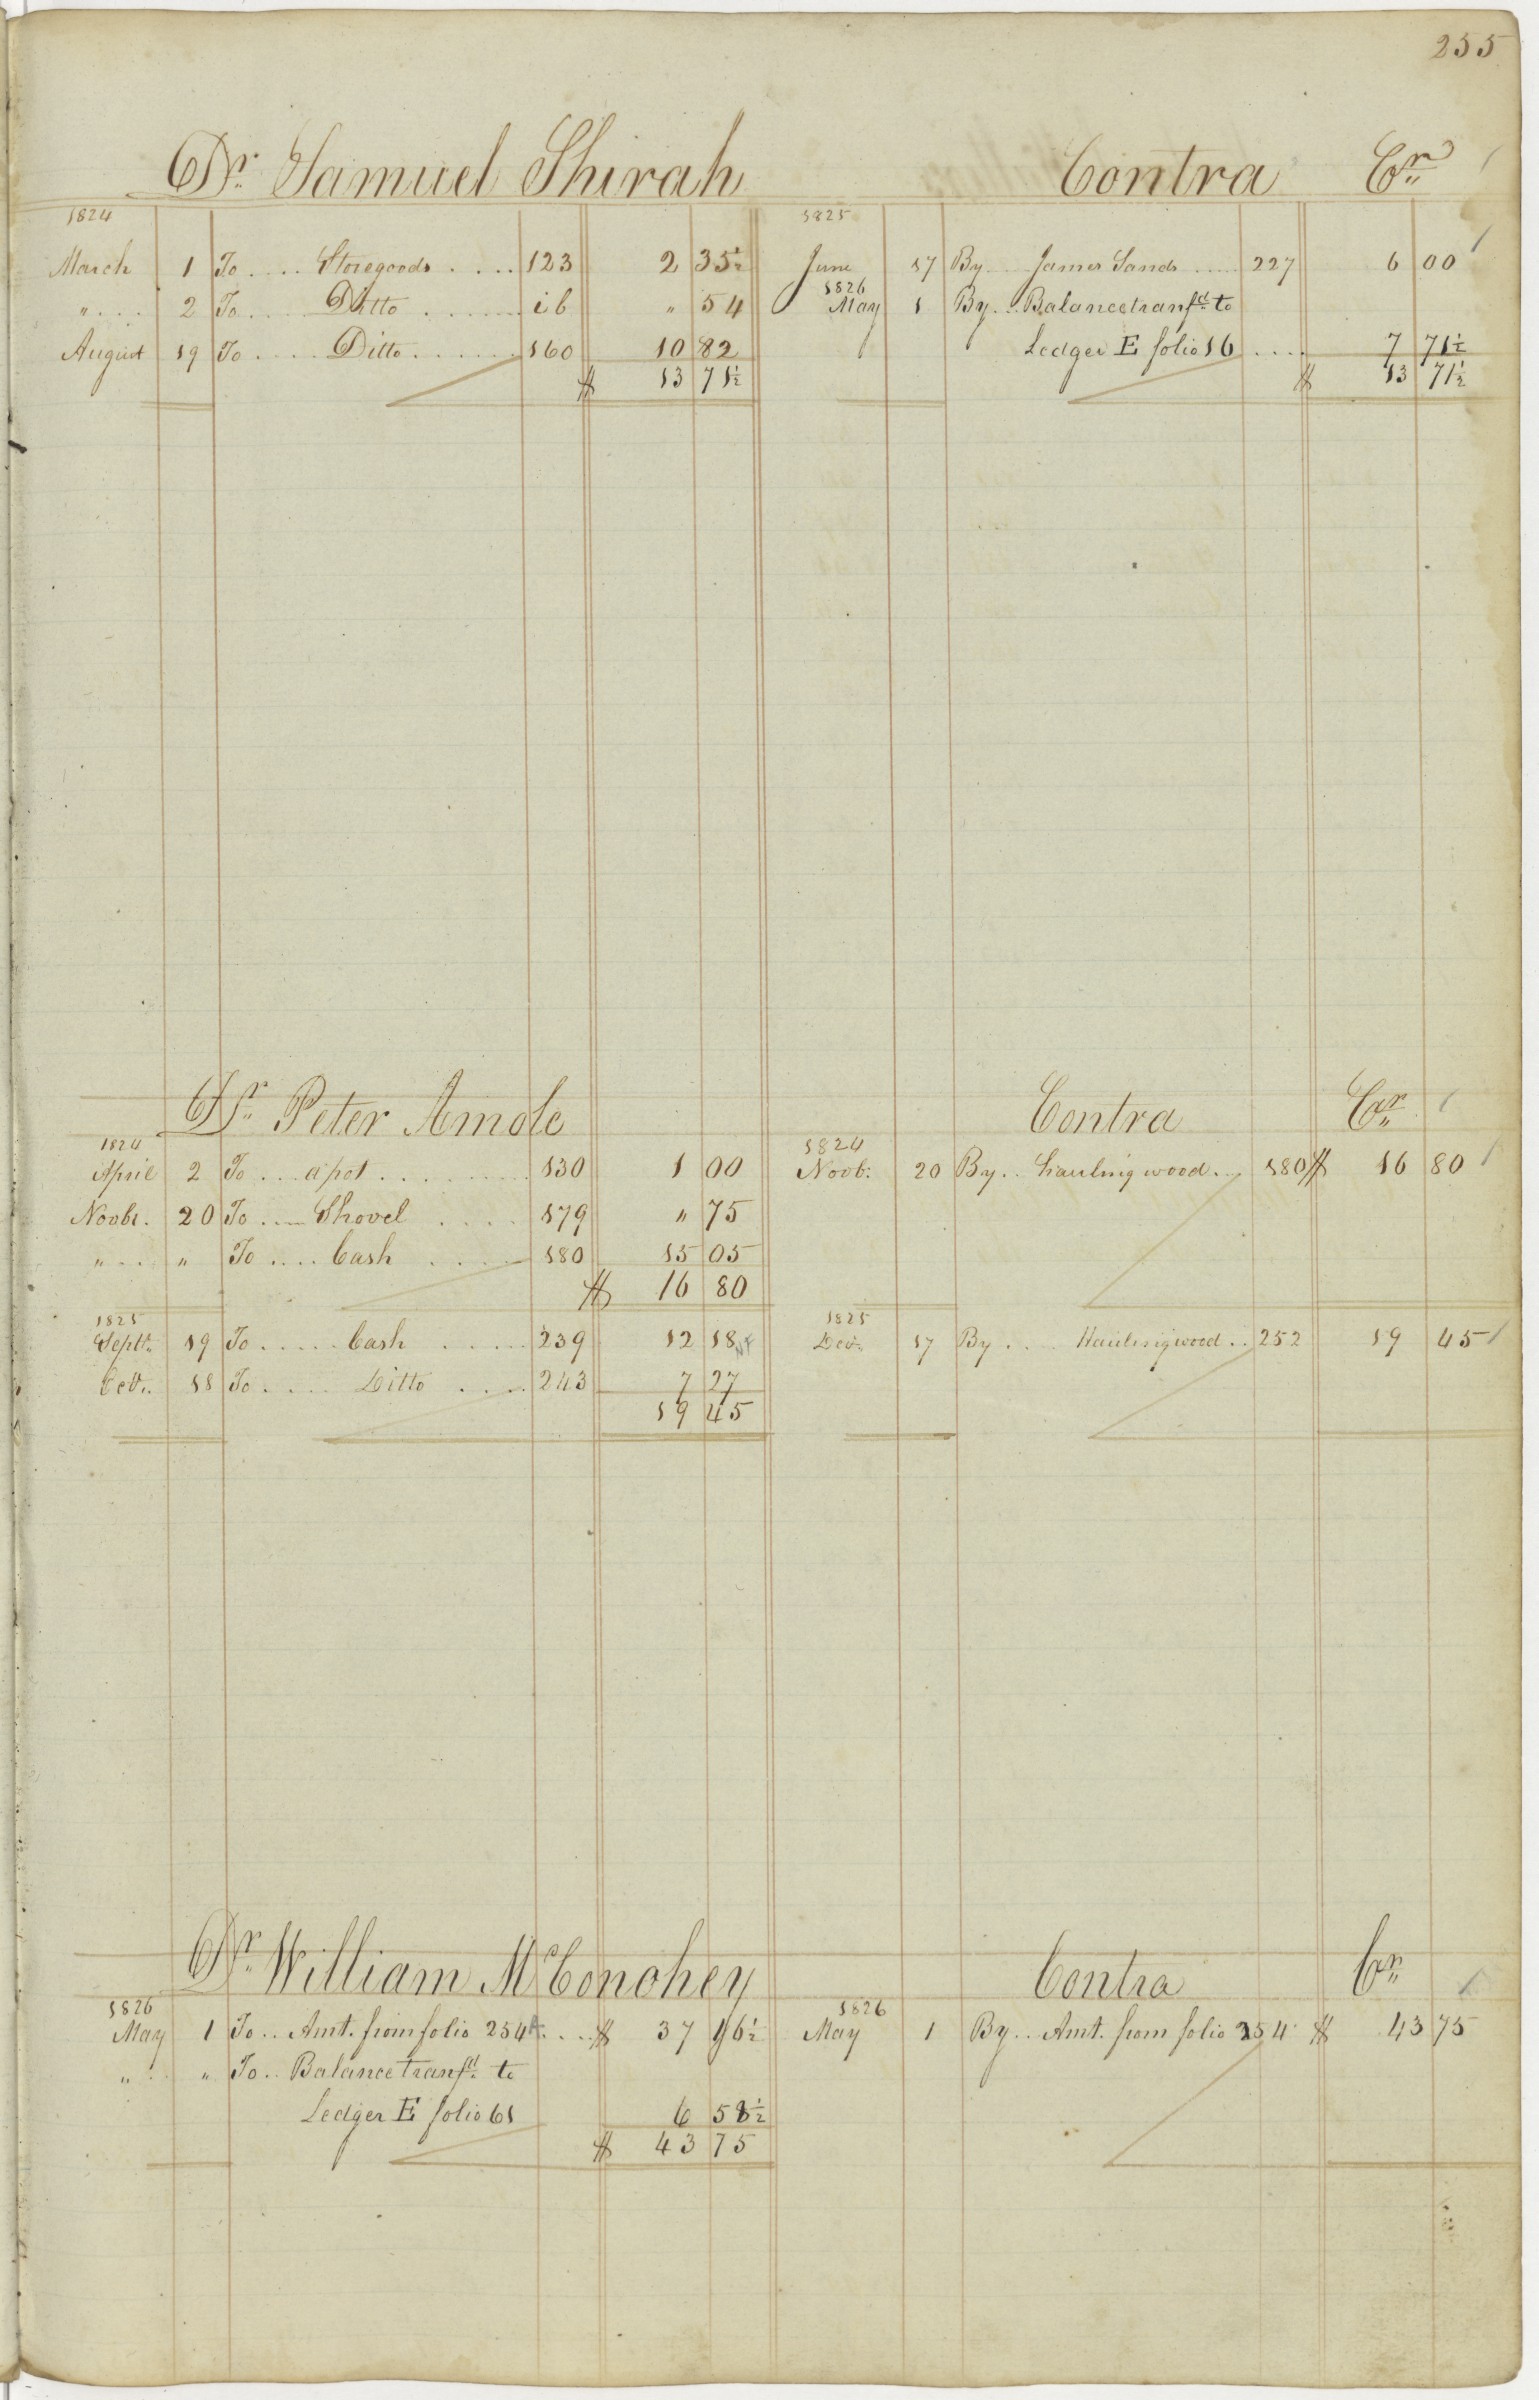 255
Dr. Samuel Shirah Contra Cr.
1824 1825
March 1 To .... Storegoods .... 123 2 35½ June 17 By .... James Sands .... 227 6 00
1826
" .... 2 To .... Ditto .... ib " 54 May 1 By .. Balance tranfd. to
August 19 To .... Ditto .... 160 10 82 Ledger E folio 16 .... 7 71½
$ 13 71½ $ 13 71½
Dr. Peter Amole Contra Cr.
1824 1824
April 2 To ... a pot ........ 130 1 00 Novb. 20 By .. hauling wood .. 180 $ 16 80
Novbr. 20 To .... Shovel .... 179 " 75
" ... " To .... Cash .... 180 15 05
$ 16 80
1825 1825
Septr. 19 To ..... Cash ..... 239 12 18 Decr. 17 By .... Hauling wood .. 252 19 45
Octr. 18 To .... Ditto .... 243 7 27
19 45
Dr. William McConohey Contra Cr.
1826 1826
May 1 To .. Amt. from folio 254 .... $ 37 16½ May 1 By .. Amt. from folio 254 $ 43 75
" .. " To .. Balance tranfd. to
Ledger E folio 61 6 58½
$ 43 75